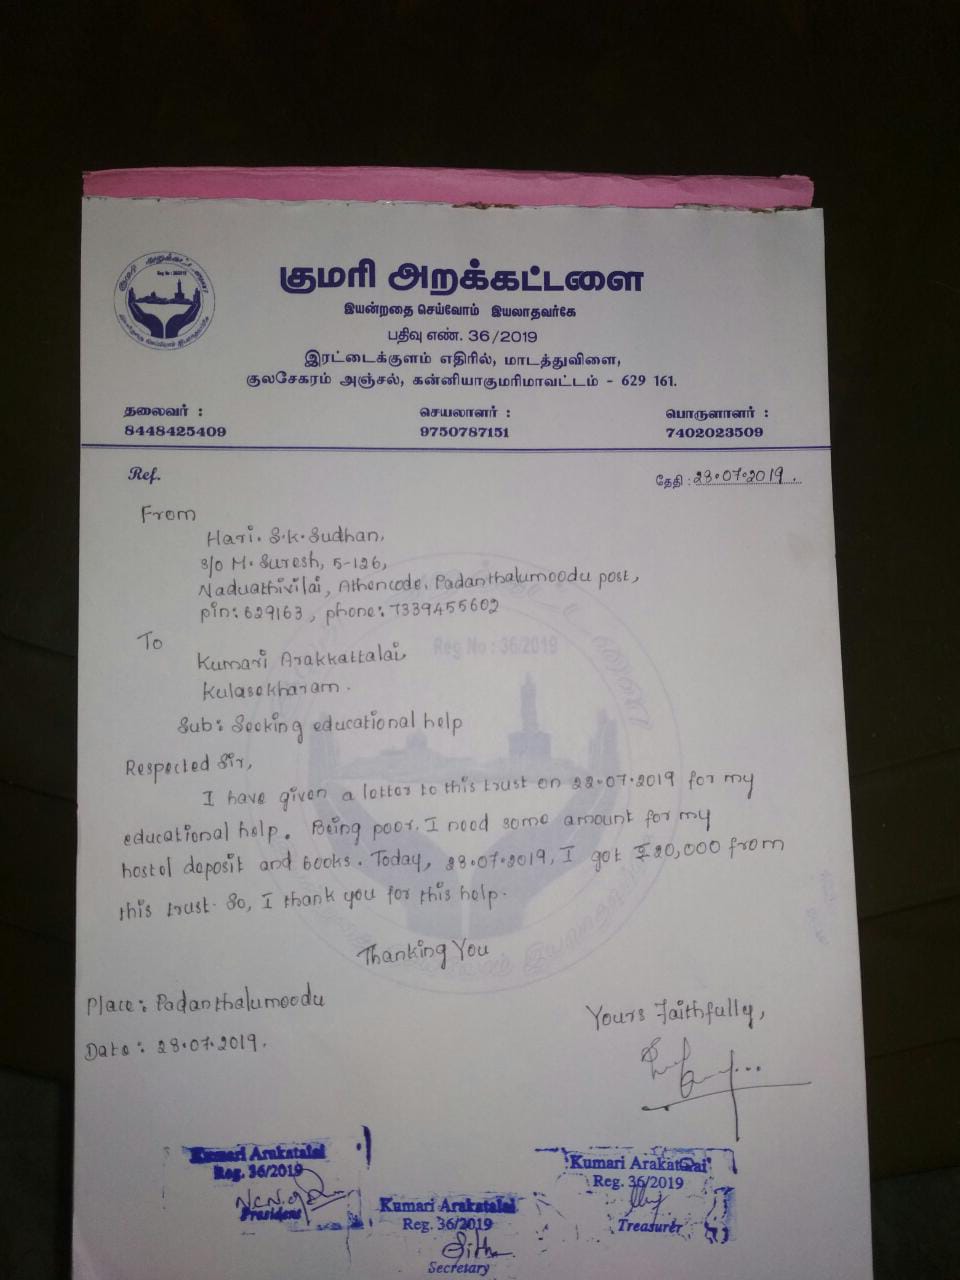 குமரி அறக்கட்டளை
Reg No : 36/2019
இயன்றதை செய்வோம் இயலாதவர்கே
பதிவு எண். 36/2019
இரட்டைக்குளம் எதிரில், மாடத்துவிளை,
குலசேகரம் அஞ்சல், கன்னியாகுமரிமாவட்டம் - 629 161.
தலைவர் : செயலாளர் : பொருளாளர் :
8448425409 9750787151 7402023509
Ref. தேதி : 28.07.2019.
From
Hari. S.K. Sudhan,
S/o M. Suresh, 5-126,
Naduathivilai, Athencode, Padanthalumoodu post,
pin: 629163, phone: 7339455602
To
Kumari Arakkattalai,
Kulasekharam.
Reg No : 36/2019
Sub: Seeking educational help
Respected Sir,
I have given a letter to this trust on 22.07.2019 for my
educational help. Being poor, I need some amount for my
hostel deposit and books. Today, 28.07.2019, I got ₹20,000 from
this trust. So, I thank you for this help.
Thanking You
Place: Padanthalumoodu
Yours Faithfully,
Date: 28.07.2019.
Kumari Arakatalai
Reg. 36/2019
President
Kumari Arakatalai
Reg. 36/2019
Secretary
Kumari Arakatalai
Reg. 36/2019
Treasurer